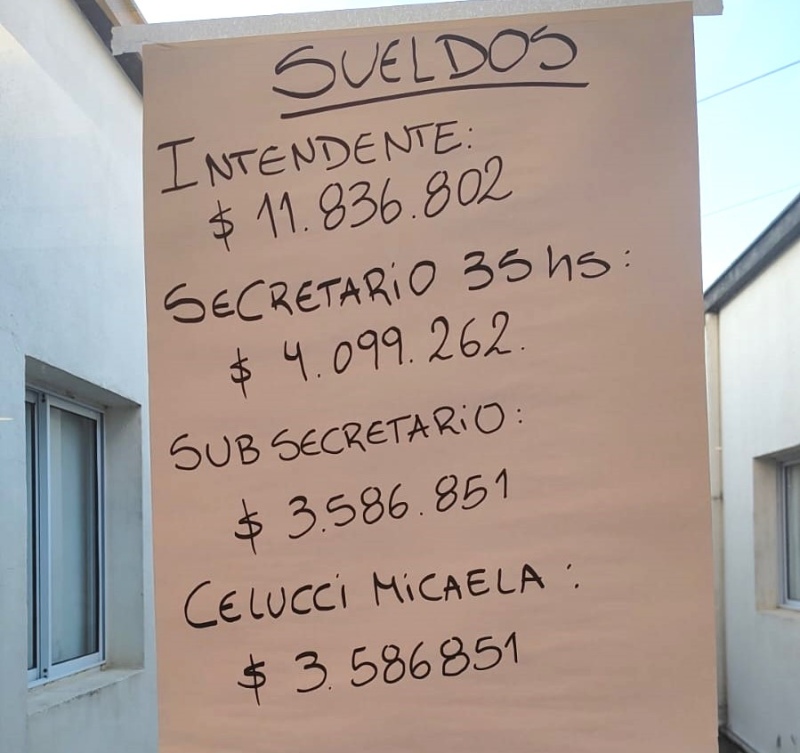 SUELDOS
INTENDENTE:
$ 11.836.802
SECRETARIO 35 hs:
$ 4.099.262.
SUB SECRETARIO:
$ 3.586.851
CELUCCI MICAELA:
$ 3.586851